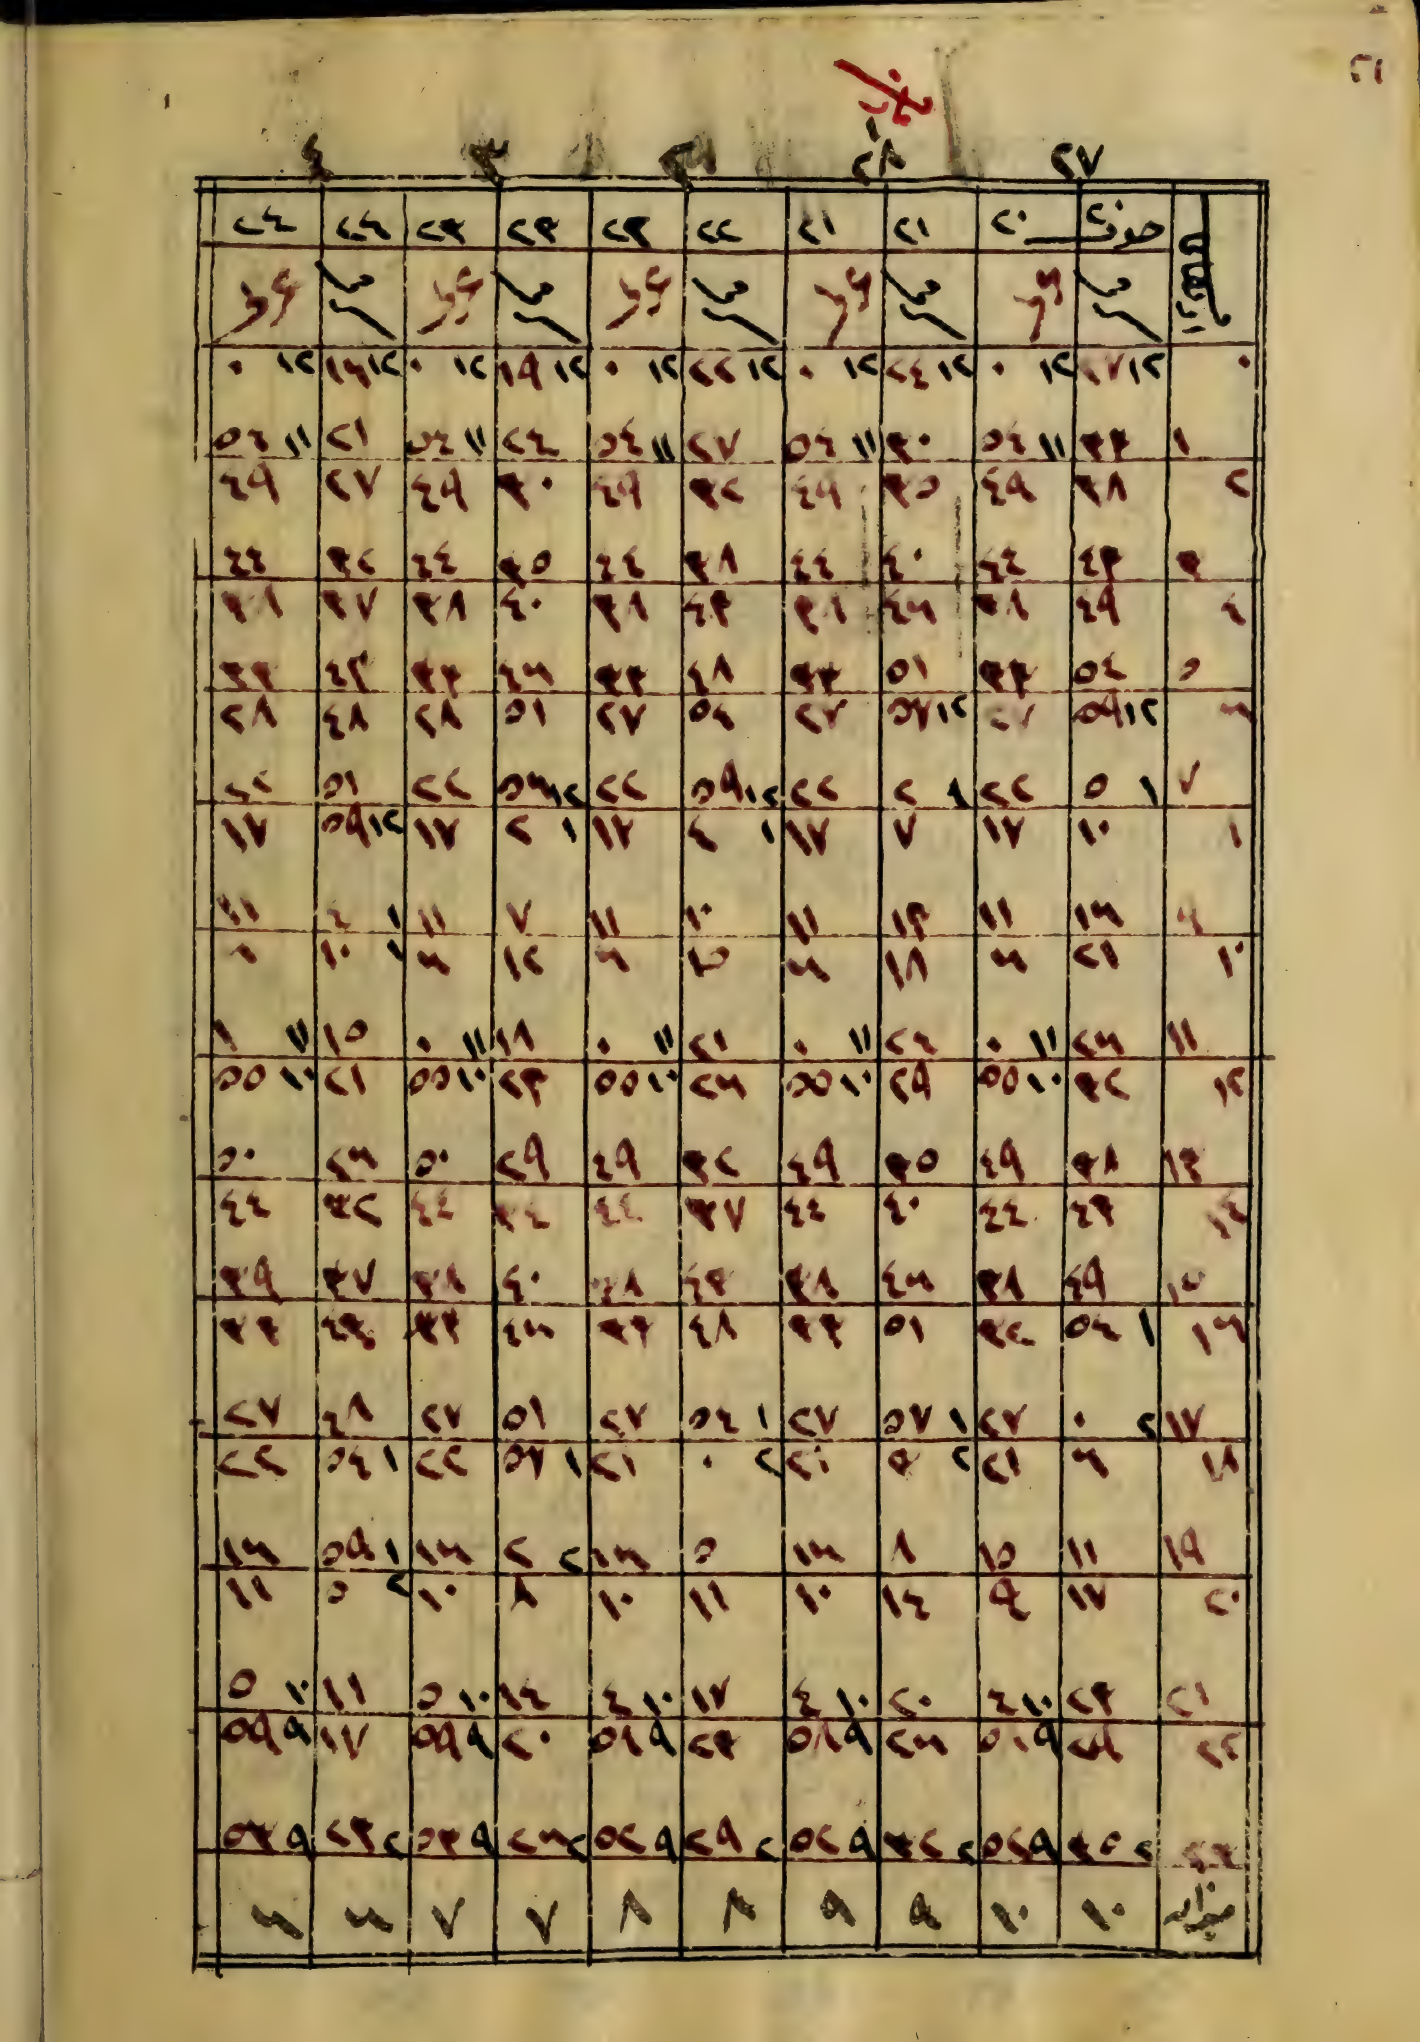 ٥١
٢٧ ٢٨
حوت ٢٠ ٢٠ ٢١ ٢١ ٢٢ ٢٣ ٢٣ ٢٣ ٢٤ ٢٤
٠ ١٢ ٢٧ ١٢ ٠ ١٢ ٢٤ ١٢ ٠ ١٢ ٢٢ ١٢ ٠ ١٢ ١٩ ١٢ ٠ ١٢ ١٦ ١٢ ٠
١ ٣٣ ١١ ٥٤ ٣٠ ١١ ٥٤ ٢٧ ١١ ٥٤ ٢٤ ١١ ٥٤ ٢١ ١١ ٥٤
٢ ٣٨ ٤٩ ٣٥ ٤٩ ٣٢ ٤٩ ٣٠ ٤٩ ٢٧ ٤٩
٣ ٤٣ ٤٤ ٤٠ ٤٤ ٣٨ ٤٤ ٣٥ ٤٤ ٣٢ ٤٤
٤ ٤٩ ٣٨ ٤٦ ٣٨ ٤٣ ٣٨ ٤٠ ٣٨ ٣٧ ٣٨
٥ ٥٤ ٣٣ ٥١ ٣٣ ٤٨ ٣٣ ٤٦ ٣٣ ٤٣ ٣٣
٦ ١٢ ٥٩ ٢٧ ١٢ ٥٧ ٢٧ ٥٤ ٢٧ ٥١ ٢٨ ٤٨ ٢٨
٧ ١ ٥ ٢٢ ١ ٢ ٢٢ ١٢ ٥٩ ٢٢ ١٢ ٥٦ ٢٢ ٥١ ٢٢
٨ ١٠ ١٧ ٧ ١٧ ١ ٤ ١٧ ١ ٢ ١٧ ١٢ ٥٩ ١٧
٩ ١٦ ١١ ١٣ ١١ ١٠ ١١ ٧ ١١ ١ ٤ ١١
١٠ ٢١ ٦ ١٨ ٦ ١٥ ٦ ١٢ ٦ ١ ١٠ ٦
١١ ٢٦ ١١ ٠ ٢٤ ١١ ٠ ٢١ ١١ ٠ ١٨ ١١ ٠ ١٥ ١١ ١
١٢ ٣٢ ١٠ ٥٥ ٢٩ ١٠ ٥٥ ٢٦ ١٠ ٥٥ ٢٣ ١٠ ٥٥ ٢١ ١٠ ٥٥
١٣ ٣٨ ٤٩ ٣٥ ٤٩ ٣٢ ٤٩ ٢٩ ٥٠ ٢٦ ٥٠
١٤ ٤٣ ٤٤ ٤٠ ٤٤ ٣٧ ٤٤ ٣٤ ٤٤ ٣٢ ٤٤
١٥ ٤٩ ٣٨ ٤٦ ٣٨ ٤٣ ٣٨ ٤٠ ٣٨ ٣٧ ٣٩
١٦ ١ ٥٤ ٣٢ ٥١ ٣٣ ٤٨ ٣٣ ٤٦ ٣٣ ٤٣ ٣٣
١٧ ٢ ٠ ٢٧ ١ ٥٧ ٢٧ ١ ٥٤ ٢٧ ٥١ ٢٧ ٤٨ ٢٧
١٨ ٦ ٢١ ٢ ٣ ٢١ ٢ ٠ ٢١ ١ ٥٧ ٢٢ ١ ٥٤ ٢٢
١٩ ١١ ١٥ ٨ ١٦ ٥ ١٦ ٢ ٢ ١٦ ١ ٥٩ ١٦
٢٠ ١٧ ٩ ١٤ ١٠ ١١ ١٠ ٨ ١٠ ٢ ٥ ١١
٢١ ٢٣ ١٠ ٤ ٢٠ ١٠ ٤ ١٧ ١٠ ٤ ١٤ ١٠ ٥ ١١ ١٠ ٥
٢٢ ٢٩ ٩ ٥٨ ٢٦ ٩ ٥٨ ٢٣ ٩ ٥٨ ٢٠ ٩ ٥٩ ١٧ ٩ ٥٩
٢٣ ٢ ٣٥ ٩ ٥٢ ٢ ٣٢ ٩ ٥٢ ٢ ٢٩ ٩ ٥٢ ٢ ٢٦ ٩ ٥٣ ٢ ٢٣ ٩ ٥٣
ميزان ١٠ ١٠ ٩ ٩ ٨ ٨ ٧ ٧ ٦ ٦